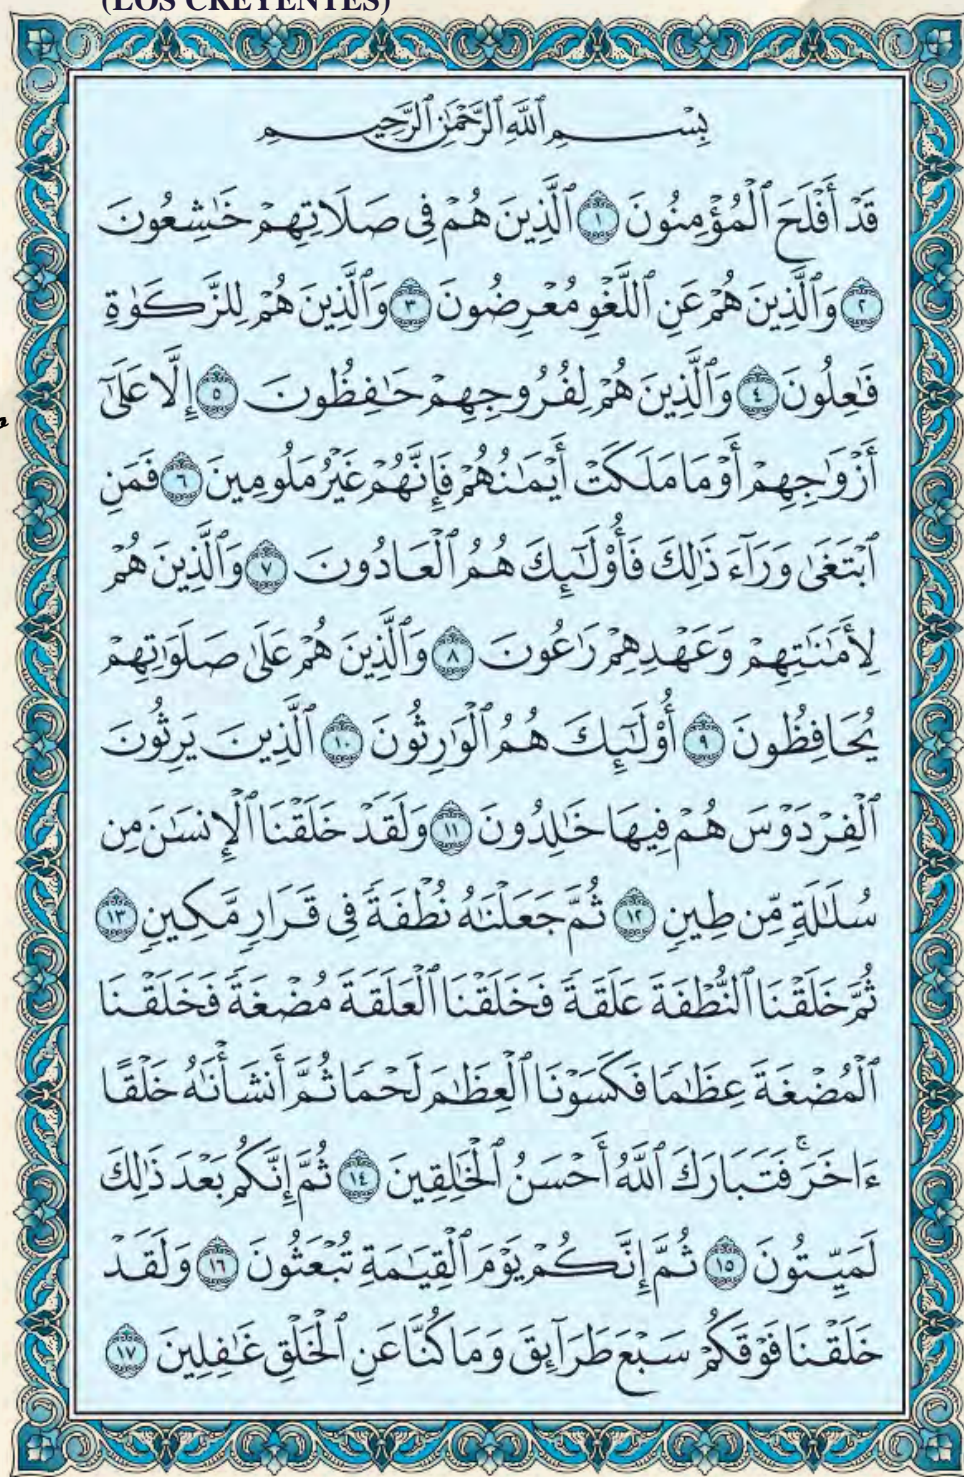 (LOS CREYENTES)
بِسْمِ ٱللَّهِ ٱلرَّحْمَٰنِ ٱلرَّحِيمِ
قَدْ أَفْلَحَ ٱلْمُؤْمِنُونَ ١ ٱلَّذِينَ هُمْ فِى صَلَاتِهِمْ خَٰشِعُونَ
٢ وَٱلَّذِينَ هُمْ عَنِ ٱللَّغْوِ مُعْرِضُونَ ٣ وَٱلَّذِينَ هُمْ لِلزَّكَوٰةِ
فَٰعِلُونَ ٤ وَٱلَّذِينَ هُمْ لِفُرُوجِهِمْ حَٰفِظُونَ ٥ إِلَّا عَلَىٰٓ
أَزْوَٰجِهِمْ أَوْ مَا مَلَكَتْ أَيْمَٰنُهُمْ فَإِنَّهُمْ غَيْرُ مَلُومِينَ ٦ فَمَنِ
ٱبْتَغَىٰ وَرَآءَ ذَٰلِكَ فَأُو۟لَٰٓئِكَ هُمُ ٱلْعَادُونَ ٧ وَٱلَّذِينَ هُمْ
لِأَمَٰنَٰتِهِمْ وَعَهْدِهِمْ رَٰعُونَ ٨ وَٱلَّذِينَ هُمْ عَلَىٰ صَلَوَٰتِهِمْ
يُحَافِظُونَ ٩ أُو۟لَٰٓئِكَ هُمُ ٱلْوَٰرِثُونَ ١٠ ٱلَّذِينَ يَرِثُونَ
ٱلْفِرْدَوْسَ هُمْ فِيهَا خَٰلِدُونَ ١١ وَلَقَدْ خَلَقْنَا ٱلْإِنسَٰنَ مِن
سُلَٰلَةٍ مِّن طِينٍ ١٢ ثُمَّ جَعَلْنَٰهُ نُطْفَةً فِى قَرَارٍ مَّكِينٍ ١٣
ثُمَّ خَلَقْنَا ٱلنُّطْفَةَ عَلَقَةً فَخَلَقْنَا ٱلْعَلَقَةَ مُضْغَةً فَخَلَقْنَا
ٱلْمُضْغَةَ عِظَٰمًا فَكَسَوْنَا ٱلْعِظَٰمَ لَحْمًا ثُمَّ أَنشَأْنَٰهُ خَلْقًا
ءَاخَرَ ۚ فَتَبَارَكَ ٱللَّهُ أَحْسَنُ ٱلْخَٰلِقِينَ ١٤ ثُمَّ إِنَّكُم بَعْدَ ذَٰلِكَ
لَمَيِّتُونَ ١٥ ثُمَّ إِنَّكُمْ يَوْمَ ٱلْقِيَٰمَةِ تُبْعَثُونَ ١٦ وَلَقَدْ
خَلَقْنَا فَوْقَكُمْ سَبْعَ طَرَآئِقَ وَمَا كُنَّا عَنِ ٱلْخَلْقِ غَٰفِلِينَ ١٧